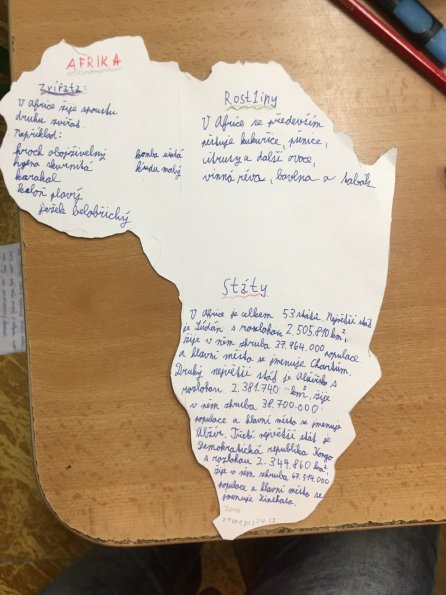 AFRIKA
Zvířata:
V Africe žije spoustu
druhu zvířat.
Například:
hroch obojživelný
hyena skvrnitá
karakal
kaloň plavý
ježek bělobřichý
kudu malý
Rostliny
V Africe se především
pěstuje kukuřice, pšenice,
citrusy a další ovoce,
vinná réva, bavlna a tabák
Státy
V Africe je celkem 53 států. Největší stát
je Súdán s rozlohou 2.505.810 km²,
žije v něm zhruba 37.964.000 populace
a hlavní město se jmenuje Chartúm.
Druhý největší stát je Alžírsko s
rozlohou 2.381.740 km², žije
v něm zhruba 38.700.000
populace a hlavní město se jmenuje
Alžír. Třetí největší stát je
Demokratická republika Kongo
s rozlohou 2.344.860 km²
žije v něm zhruba 67.514.000
populace a hlavní město se
jmenuje Kinshasa.